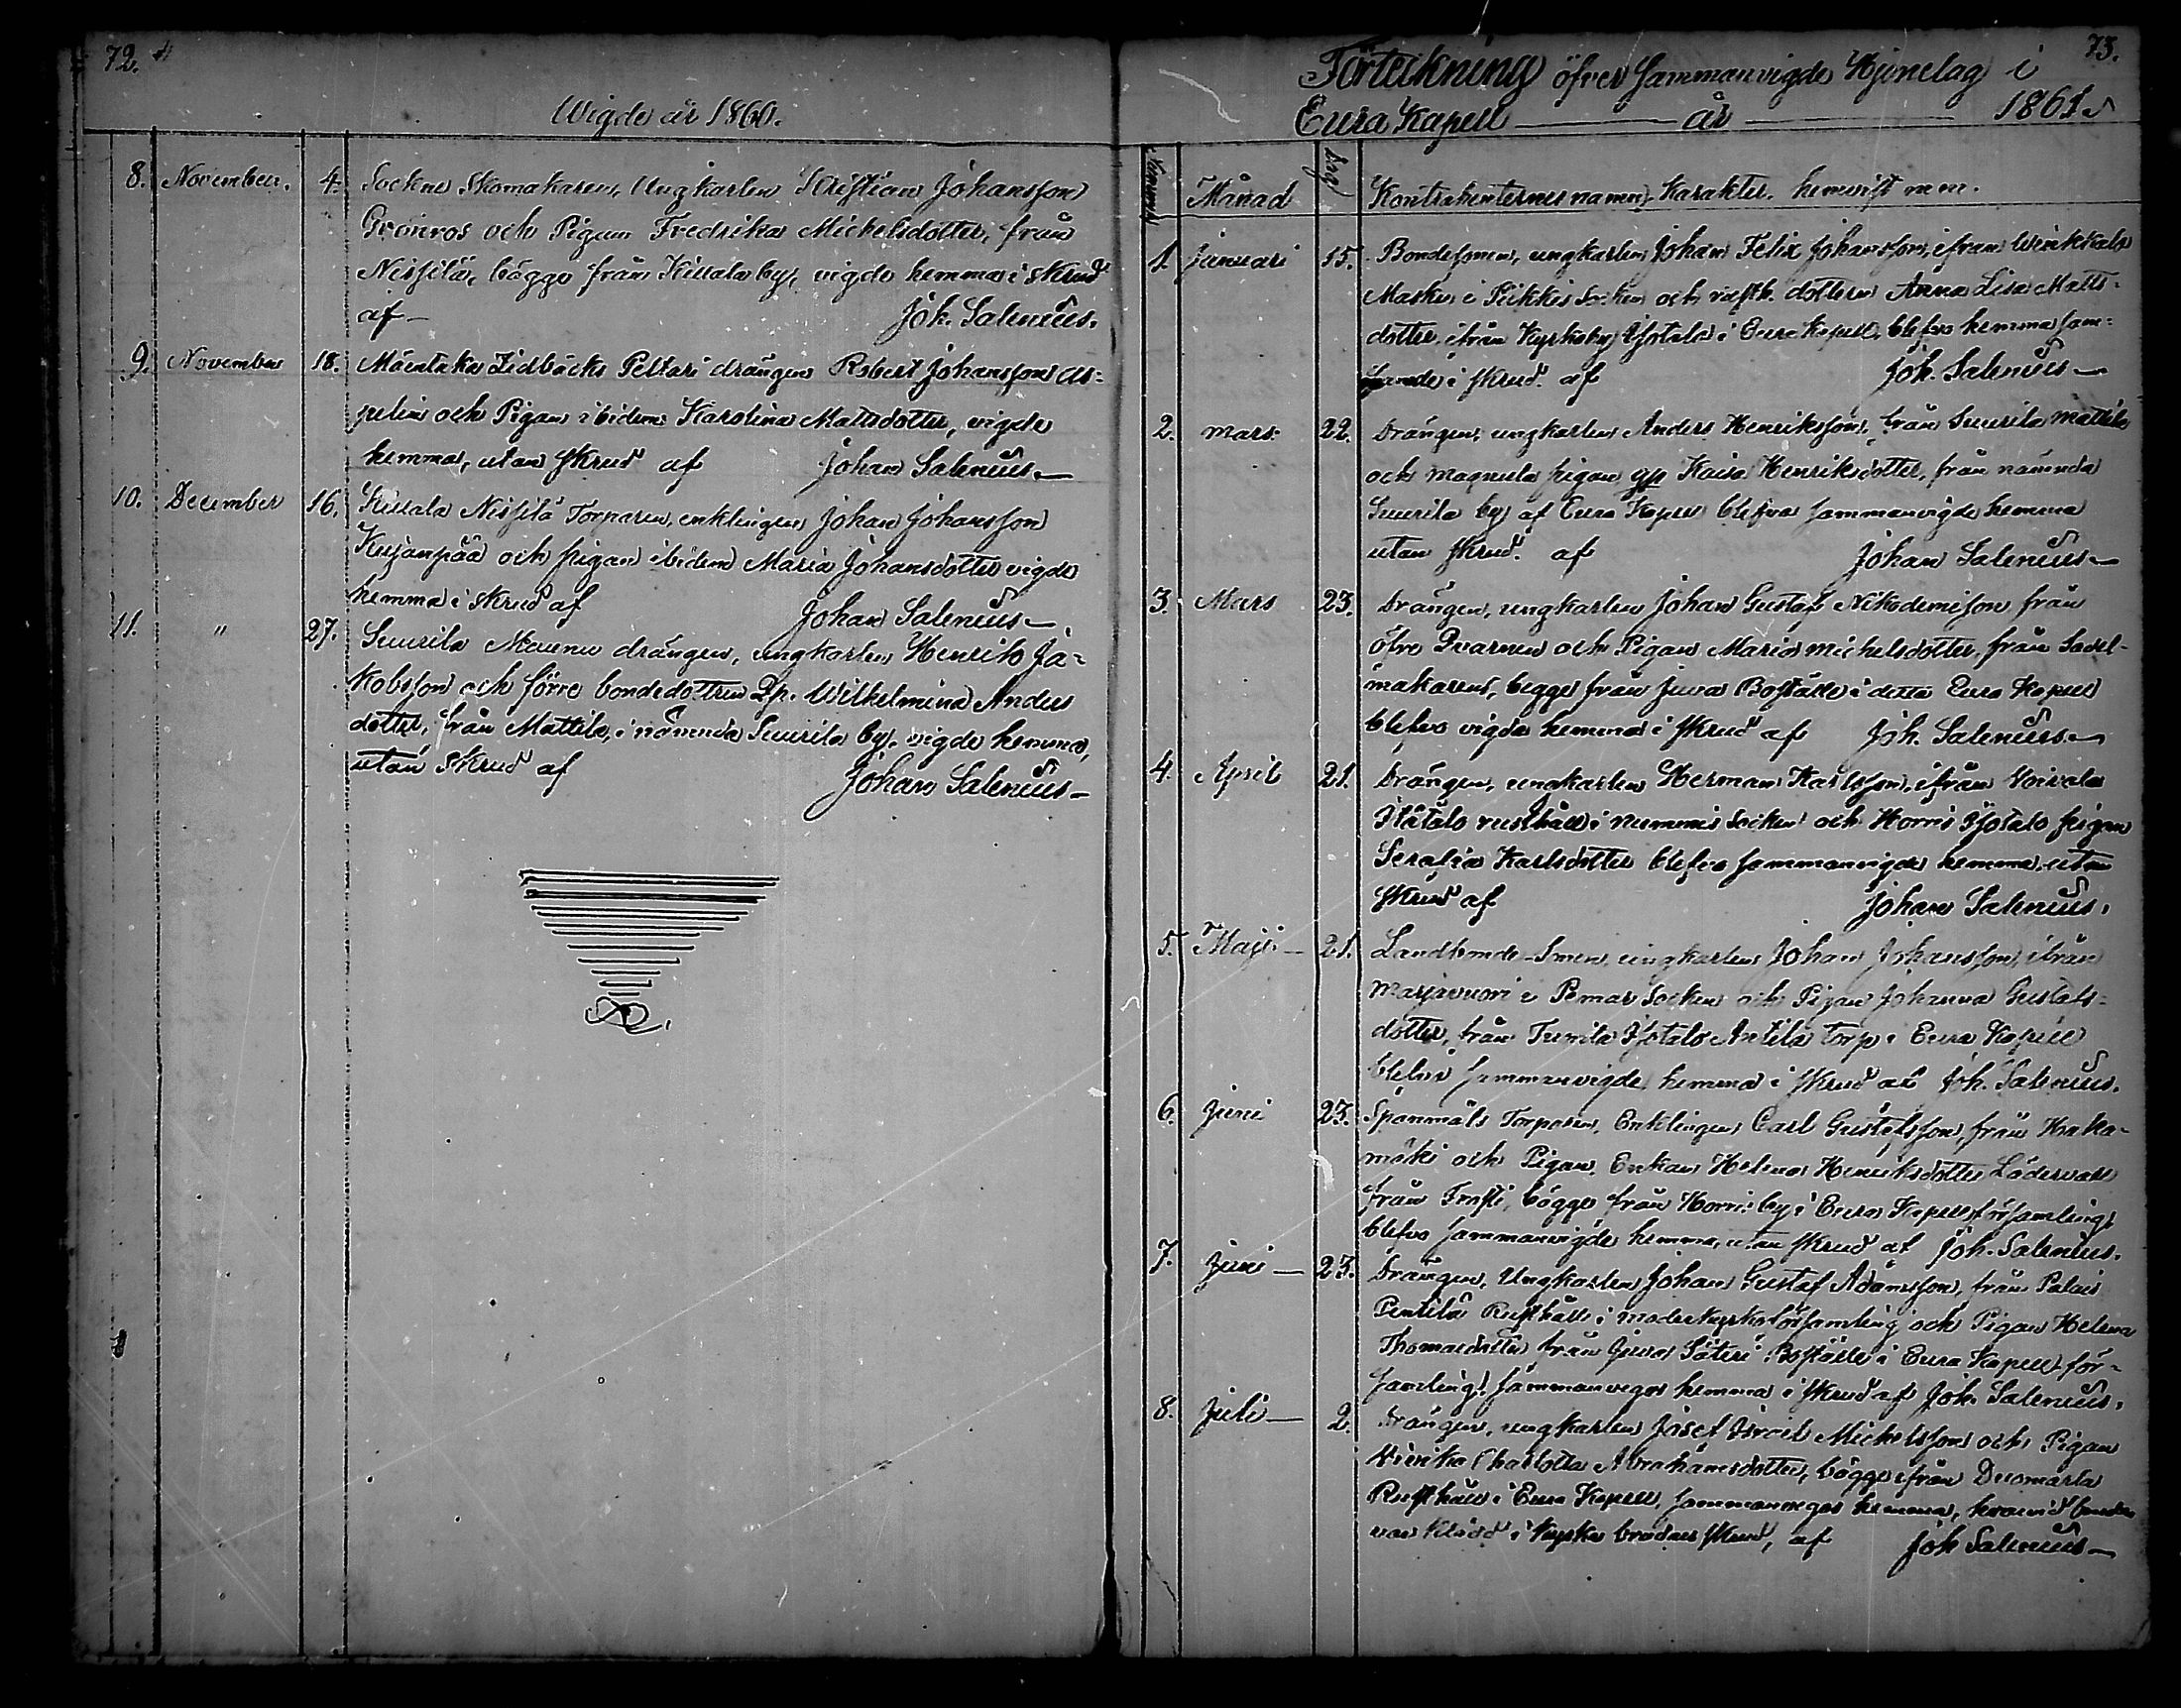 72.
Wigde år 1860.
8. November. 4. Sockne Skomakaren, Ungkarlen Kristian Johansson
Grönros och Pigan Fredrika Michelsdotter, från
Nissilä, bägge från Kiuala by, vigde hemma i skrud
af — Joh. Salenius.
9. November 18. Mäentaka Lidbäcks Peltari drängen Robert Johansson As-
pelin och Pigan ibidem Karolina Mattsdotter, vigde
hemma, utan skrud af Johan Salenius —
10. December 16. Kiuala Nissilä Torparen, enklingen Johan Johansson
Kujanpää och pigan ibidem Maria Johansdotter vigde
hemma i skrud af Johan Salenius —
11. " 27. Suurila Maunu drängen, ungkarlen Henrik Ja-
kobsson och förre bondedottren Wilhelmina Anders
dotter, från Mattila, i nämnda Suurila by, vigde hemma,
utan skrud af Johan Salenius —
73.
Förteikning öfver Sammanvigde Hjonelag i
Eura Kapell — år — 1861.
Månad Dag Kontrahenternes namn, karakter, hemvist m.m.
1. Januari 15. Bondesonen, ungkarlen Johan Felix Johansson, ifrån
Masku i Piikkis Socken och dottren Anna Lisa Matts-
dotter, ifrån Kyrkoby Isotalo i Eura Kapell, blefvo hemma sam-
i skrud af Joh. Salenius —
2. Mars 22. Drängen, ungkarlen Anders Henriksson, från Suurila Mattila
och Magnula pigan Kaisa Henriksdotter, från nämnda
Suurila by af Eura Kapell blefvo sammanvigde hemma
utan skrud af Johan Salenius —
3. Mars 23. Drängen, ungkarlen Johan Gustaf Nikodemisson från
öfre Qvarnen och Pigan Maria Michelsdotter, från Sadel-
makarens, begge från Juva Boställe i detta Eura Kapell
blefvo vigde hemma i skrud af Joh. Salenius —
4. April 21. Drängen, ungkarlen Herman Karlsson, ifrån
Itätalo rusthåll i Nummis Socken och Horris Isotalo pigan
Serafia Karlsdotter blefvo sammanvigde hemma, utan
skrud af Johan Salenius.
5. Maji — 21. Landbonde-Sonen, ungkarlen Johan Johansson, ifrån
Marjavuori i Pemar Socken och Pigan Johanna Gustafs-
dotter, från Isotalo Antila torp i Eura Kapell
blefvo sammanvigde hemma i skrud af Joh. Salenius.
6. Juni 23. Torparen, Enklingen Carl Gustafsson, från Haka-
mäki och Pigan, Enkan Helena Henriksdotter
från bägge från Horris by i Eura Kapellförsamling,
blefvo sammanvigde hemma, utan skrud af Joh. Salenius.
7. Juni — 23. Drängen, Ungkarlen Johan Gustaf Adamsson, från Palais
Pentilä Rusthåll i moderkyrkoförsamling och Pigan Helena
Thomasdotter från Juva Säteri Boställe i Eura Kapell för-
samling, sammanvigas hemma i skrud af Joh. Salenius.
8. Juli — 2. Drängen, ungkarlen Josef Israel Michelsson och Pigan
Ulrika Charlotta Abrahamsdotter, bägge ifrån Duomarla
Rusthåll i Eura Kapell, sammanvigas hemma, hvarvid bruden
var klädd i Kyrko brudens skrud, af Joh Salenius —